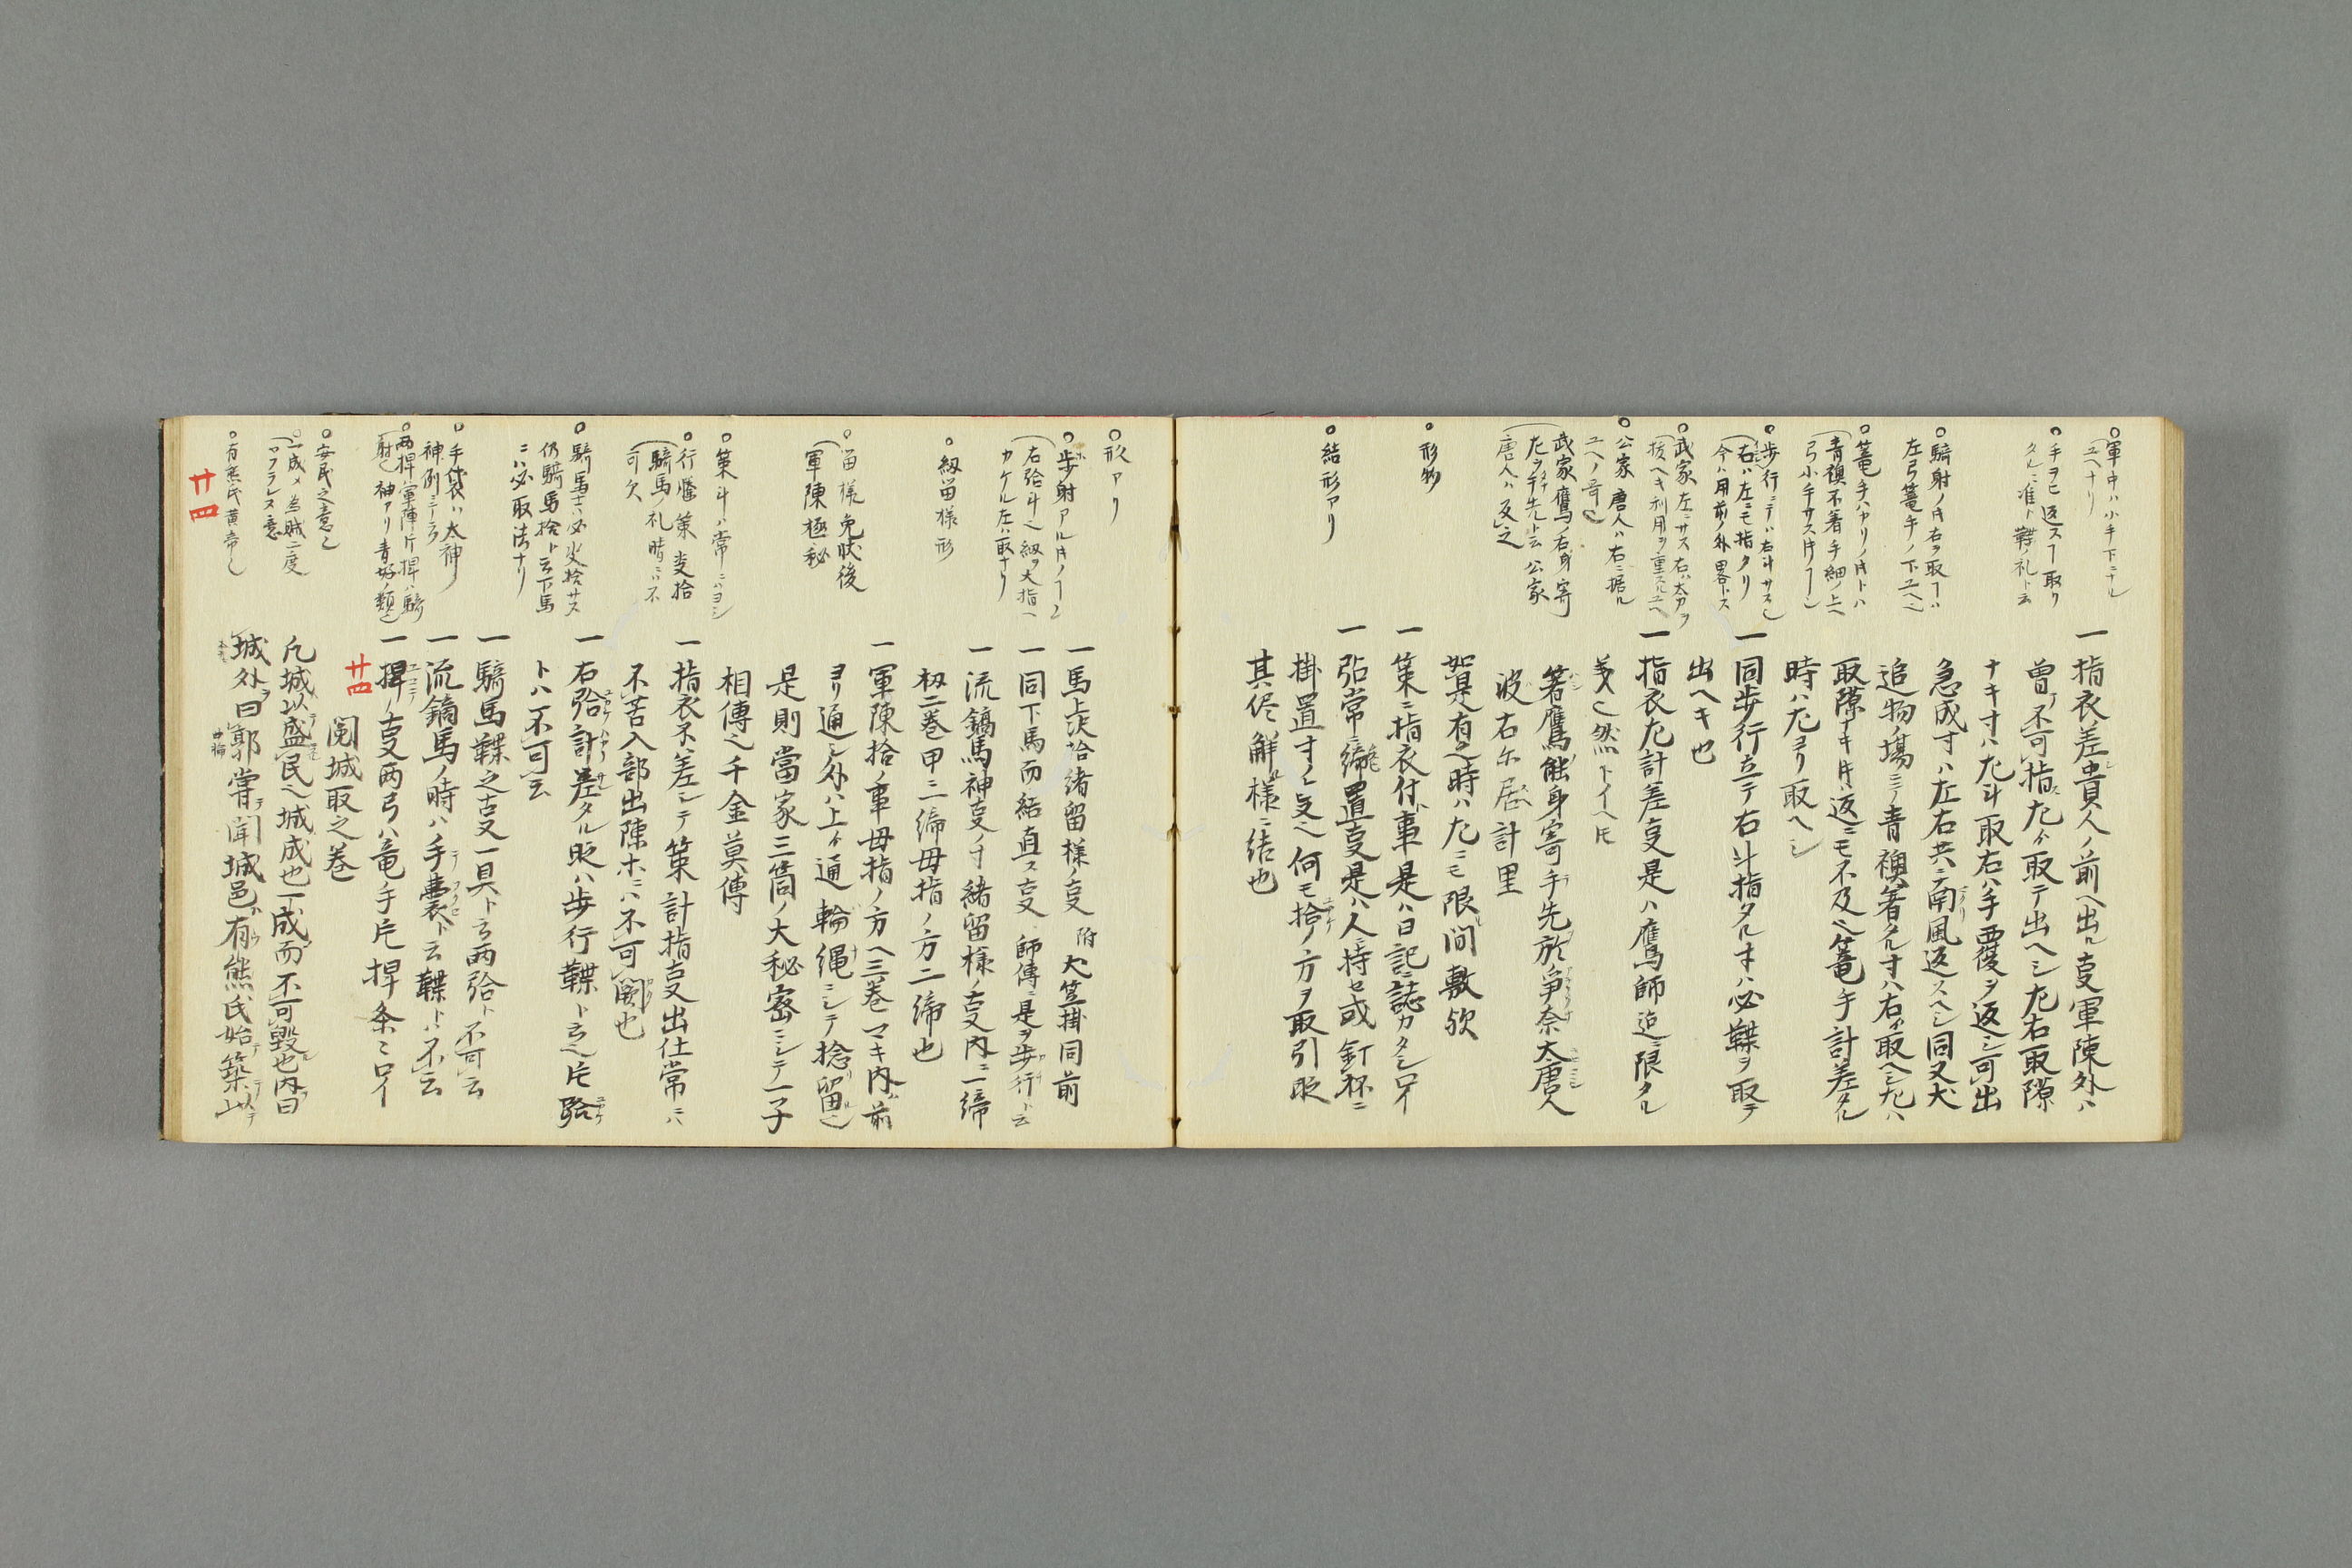 ○軍中ハ小手下ニナル
ユヘナリ
○手ヲヒ返スヿ取リ
タルニ准ト鞢ノ礼ト云
○騎射ノ片右ヲ取ヿハ
左弓篭手ノ下ユヘ
○篭手ハヤリノ片トハ
青襖不著手細ノ上ヘ
弓小手サス片ノヿ
○歩行ニテハ右斗サス
右ハ左ニモ指タリ
今ハ用前ノ外畧トス
○武家左ニサス右ハ太刀ヲ
抜ヘキ利用ヲ重スルユヘ
○公家唐人ハ右ニ据ル
ユヘノ哥
武家鷹ノ右身寄
左ヲ手先ト云公家
唐人ハ反之
○形物
○結形アリ
一指衣差貴人ノ前ヘ出ル叓軍陳外ハ
曽テ不可指左ヲ取テ出ヘシ左右取隙
ナキ寸ハ左斗取右ハ手覆ヲ返シ可出
急成寸ハ左右共ニ南風返スヘシ同又犬
追物ノ場ニテノ青襖著タル寸ハ右ヲ取ヘシ左ハ
取隙ナキ片ハ返ニモ不及篭手計差タル
時ハ左ヨリ取ヘシ
一同歩行立テ右斗指タル寸ハ必鞢ヲ取テ
出ヘキ也
一指衣左計差叓是ハ鷹師迄ニ限タル
義也然トイヘ圧
箸鷹能身寄手先於爭奈大唐人
波右尓居計里
如是有之時ハ左ニモ限間敷欤
一策ニ指衣付事是ハ日記ニ誌カタシロイ
一弽常ニ締置叓是ハ人ニ持セ或釘杯ニ
掛置寸ノ叓也何モ拾ノ方ヲ取引眤
其侭解様ニ結也
○形アリ
○歩射アル片ノヿ
右弽斗之紐ヲ大指ヘ
カケル左ハ取ナリ
○紐留様形
○留様免状後
軍陳極秘
○策斗ハ常ニハヨシ
○行縢策叓拾
騎馬ノ礼時ニハ不
可欠
○騎馬士ハ必火拾サス
仍騎馬拾ト云下馬
ニハ必取法ナリ
○手袋ハ太神
神例ニ云
○両捍軍陣片捍ハ騎
射神アリ青好ノ類
○安民之意也
○一成〆為賊ニ度
ヤフラレヌ意
○有熊氏黄帝也
廿四
一馬上決拾緒留様ノ叓 附犬笠掛同前
一同下馬而結直ス叓 師傳ニ是ヲ歩行ト云
一流鏑馬神叓ノ寸緒留様ノ叓内ニ一締
扨二巻甲ニ締毋指ノ方二締也
一軍陳拾ノ事毋指ノ方ヘ三巻マキ内ノ前
ヨリ通シ外ハ上ヲ通輪縄ニシテ捻留也
是則當家三箇ノ大秘密ニシテ一子
相傳之千金莫傳
一指衣不差シテ策計指叓出仕常ニハ
不苦入部出陳ホニハ不可闕也
一右弽計差タル眤ハ歩行鞢ト云ヘ圧弽
トハ不可云
一騎馬鞢之叓一具トテ両弽ト不可云
一流鏑馬ノ時ハ手嚢ト云鞢トハ不云
一捍ノ叓両弓ハ篭手片捍条ニロイ
廿四
閲城取之巻
凢城以盛民也城成也一成而不可毀也内曰
城外曰郭嘗聞城邑有熊氏始築以